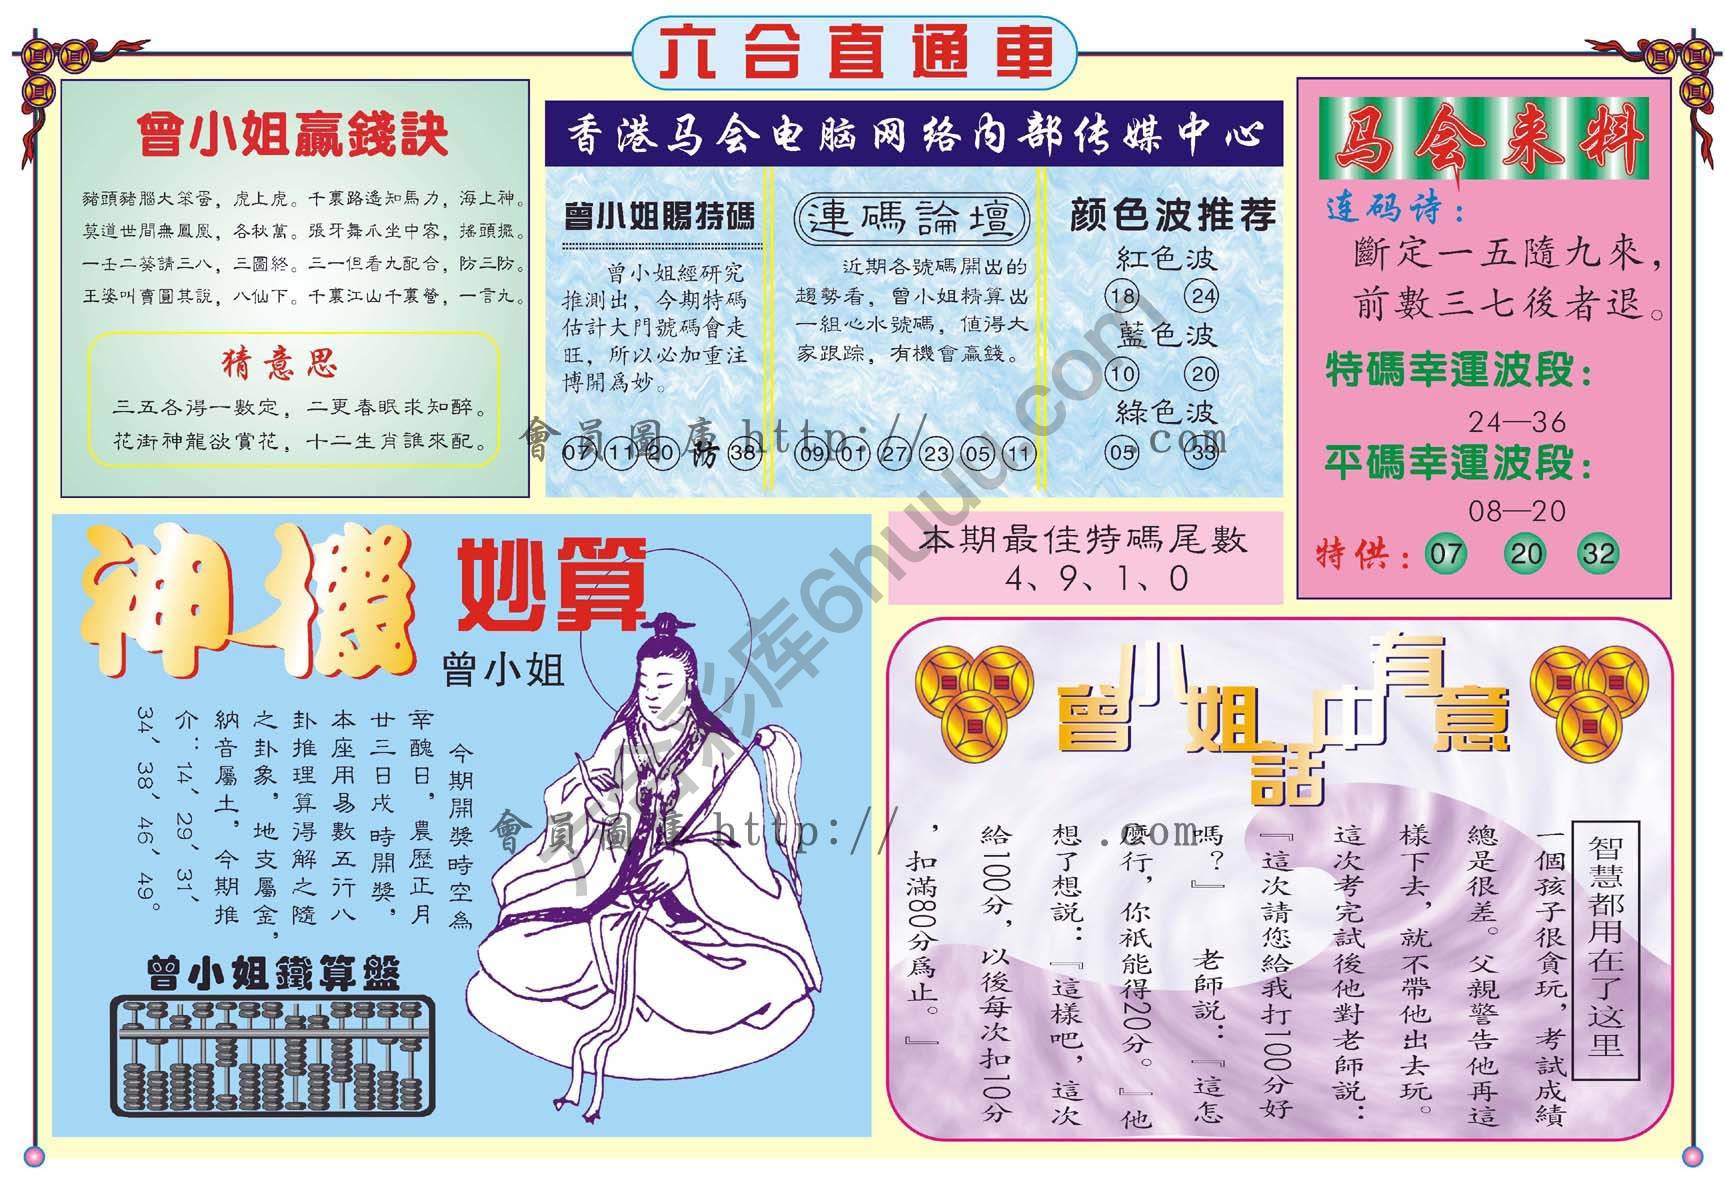 六合直通車
曾小姐贏錢訣
豬頭豬腦大笨蛋，虎上虎。千裏路遙知馬力，海上神。
莫道世間無鳳凰，各秋萬。張牙舞爪坐中客，搖頭擺。
一壬二葵請三八，三圖終。三一但看九配合，防三防。
王婆叫賣圓其說，八仙下。千裏江山千裏營，一言九。
猜意思
三五各得一數定，二更春眠求知醉。
花街神龍欲賞花，十二生肖誰來配。
香港马会电脑网络内部传媒中心
曾小姐賜特碼
曾小姐經研究
推測出，今期特碼
估計大門號碼會走
旺，所以必加重注
博開爲妙。
07 11 20 防 38
連碼論壇
近期各號碼開出的
趨勢看，曾小姐精算出
一組心水號碼，值得大
家跟踪，有機會贏錢。
09 01 27 23 05 11
颜色波推荐
紅色波
18 24
藍色波
10 20
綠色波
05 33
马会来料
连码诗：
斷定一五隨九來，
前數三七後者退。
特碼幸運波段：
24—36
平碼幸運波段：
08—20
特供：07 20 32
本期最佳特碼尾數
4、9、1、0
神機妙算
曾小姐
今期開獎時空為
辛醜日，農歷正月
廿三日戌時開獎，
本座用易數五行八
卦推理算得解之隨
之卦象，地支屬金，
納音屬土，今期推
介：14、29、31、
34、38、46、49。
曾小姐鐵算盤
曾小姐話中有意
智慧都用在了这里
一個孩子很貪玩，考試成績
總是很差。父親警告他再這
樣下去，就不帶他出去玩。
這次考完試後他對老師説：
『這次請您給我打100分好
嗎？』　老師説：『這怎
麼行，你衹能得20分。』他
想了想説：『這樣吧，這次
給100分，以後每次扣10分
，扣滿80分爲止。』
會員圖庫 http:// .com
會員圖庫 http:// .com
六合彩库6huu.com